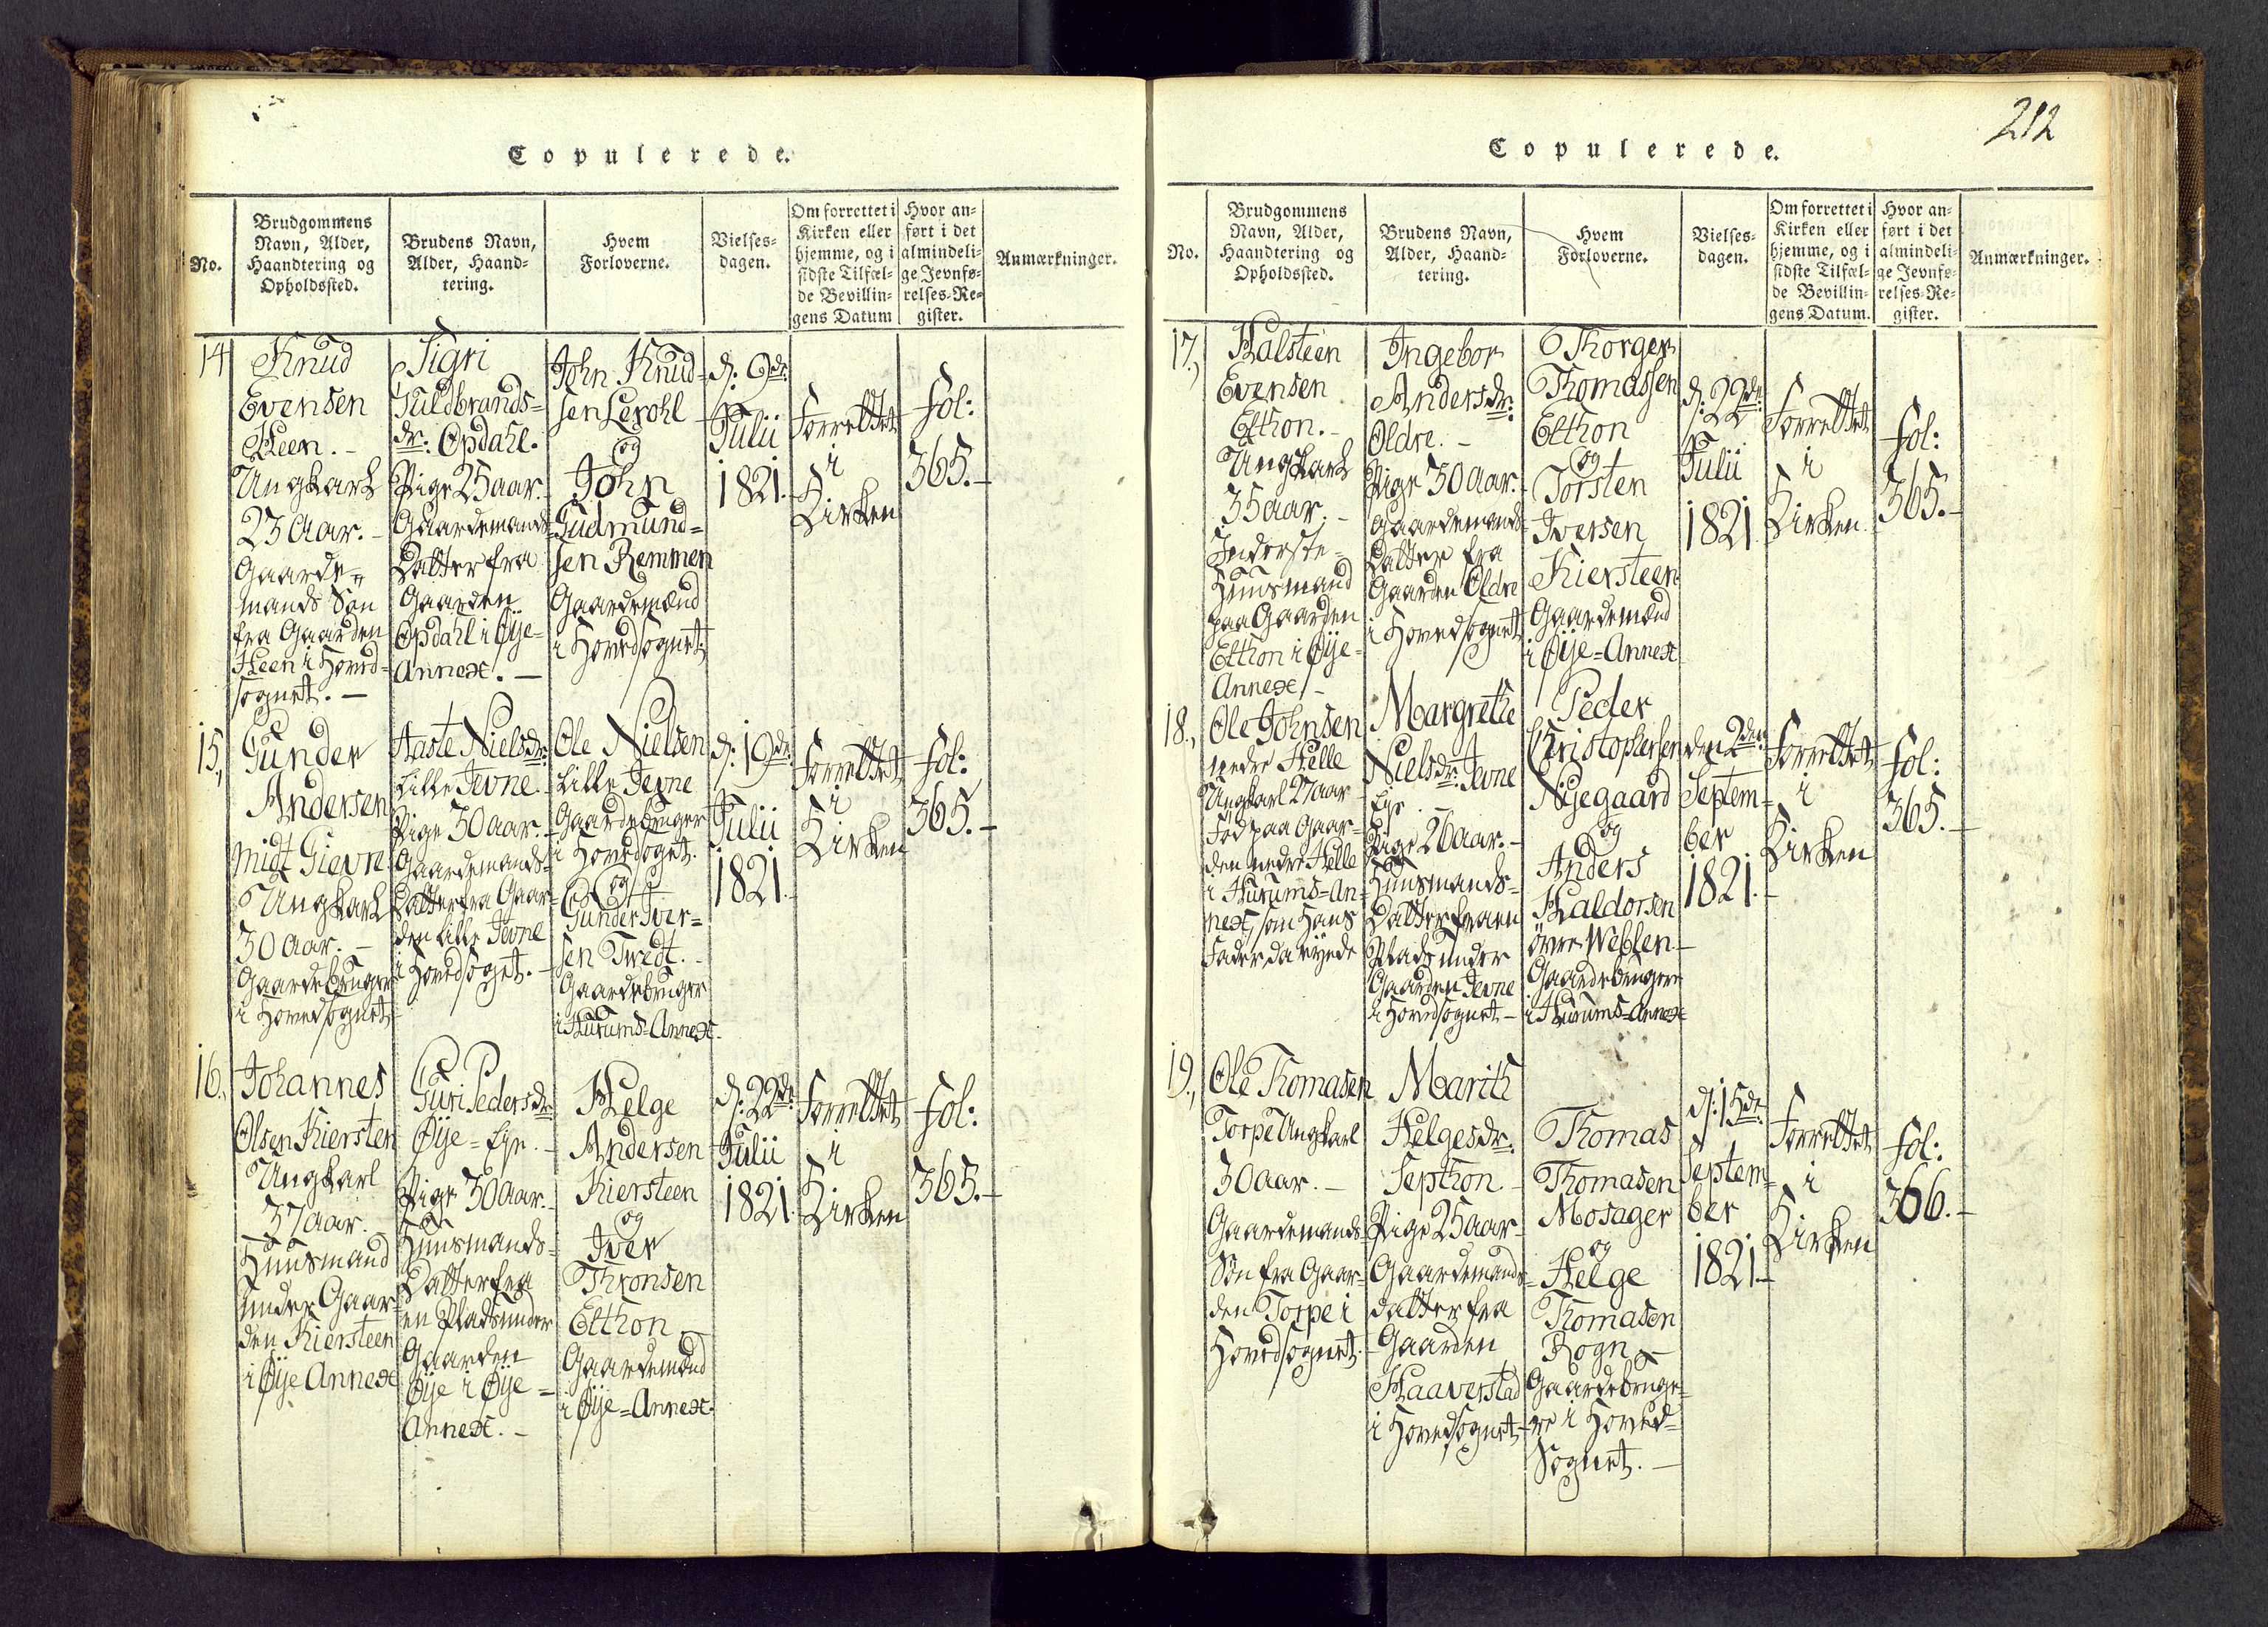 Copulerede.
No.
Brudgommens
Navn, Alder,
Haandtering og
Opholdssted.
Brudens Navn,
Alder, Haand-
tering.
Hvem
Forloverne.
Vielses-
dagen.
Om forrettet i
Kirken eller
hjemme, og i
sidste Tilfæl-
de Bevillin-
gens Datum
Hvor an-
ført i det
almindeli-
ge Jevnfø-
relses-Re-
gister.
Anmærkninger.
14
Knud
Evensen
Heen. -
Ungkarl
23 Aar. -
Gaarde-
mands Søn
fra Gaarden
Heen i Hoved-
sognet. -
Sigri
Guldbrands-
dr: Opdahl.
Pige 25 aar.
Gaardemands
Datter fra
Gaarden
Opdahl i Øye-
Annex. -
John Knud-
sen Lerohl
og
John
Gudmund-
sen Remmen
Gaardemænd
i Hovedsognet
d: 9de
Julii
1821.
Forrettet
i
Kirken
Fol:
365. -
15,
Gunder
Andersen
midt Gievne
Ungkarl
30 Aar. -
Gaardebruger
i Hovedsognet
Aaste Nielsdr:
Lille Jevne.
Pige 30 aar. -
Gaardemands-
Datter fra Gaar-
den Lille Jevne
i Hovedsognet. -
Ole Nielsen
Lille Jevne
Gaardebruger
i Hovedsognet.
og
Gunder Iver-
sen Twedt. -
Gaardebruger
i Hurums-Annex.
d: 19de
Julii
1821.
Forrettet
i
Kirken
Fol:
365. -
16.,
Johannes
Olsen Kiersten
Ungkarl
37 aar.
Huusmand
under Gaar-
den Kiersteen
i Øije Annex
Guri Pedersdr:
Øije-Eje. -
Pige 30 Aar. -
Huusmands-
Datter fra
en Plads under
Gaarden
Øije i Øije-
Annex. -
Helge
Andersen
Kiersteen
og
Iver
Thronsen
Elthon
Gaardemænd
i Øije-Annex.
d: 22de
Julii
1821.
Forrettet
i
Kirken
Fol:
365. -
212
Copulerede.
No.
Brudgommens
Navn, Alder,
Haandtering og
Opholdssted.
Brudens Navn,
Alder, Haand-
tering.
Hvem
Forloverne.
Vielses-
dagen.
Om forrettet i
Kirken eller
hjemme, og i
sidste Tilfæl-
de Bevillin-
gens Datum.
Hvor an-
ført i det
almindeli-
ge Jevnfø-
relses-Re-
gister.
Anmærkninger.
17.,
Halsteen
Evensen
Elthon. -
Ungkarl
35 aar. -
Inderste-
Huusmand
paa Gaarden
Elthon i Øije-
Annex -
Ingebor
Andersdr:
Oldre. -
Pige 30 Aar.
Gaardemands
Datter fra
Gaarden Oldre
i Hovedsognet
Thorger
Thomassen
Elthon
og
Torsten
Iversen
Kiersteen
Gaardemænd
i Øije-Annex
d: 22de
Julii
1821
Forrettet
i
Kirken
Fol:
365. -
18.,
Ole Johnsen
nedre Helle
Ungkarl 27 aar
Fød paa Gaar-
den nedre Helle
i Hurums-An-
nex, som Hans
Fader da eyede
Margrethe
Nielsdr: Jevne
Eje. -
Pige 26 aar. -
Huusmands-
Datter fra en
Plads under
Gaarden Jevne
i Hovedsognet -
Peder
Christophersen
Nijegaard
og
Anders
Haldorsen
øvre Weblen. -
Gaardebrugere
i Hurums-Annex
den 2den
Septem-
ber
1821. -
Forrettet
i
Kirken
Fol:
365. -
19.,
Ole Thomasen
Torpe Ungkarl
30 aar. -
Gaardemands-
Søn fra Gaar-
den Torpe i
Hovedsognet
Marith
Helgesdr:
Septhon. -
Pige 25 aar -
Gaardemands-
datter fra
Gaarden
Haaverstad
i Hovedsognet
Thomas
Thomasen
Mosager
og
Helge
Thomasen
Rogn -
Gaardebruge-
re i Hoved-
Sognet. -
d: 15de
Septem-
ber
1821. -
Forrettet
i
Kirken
Fol:
366. -